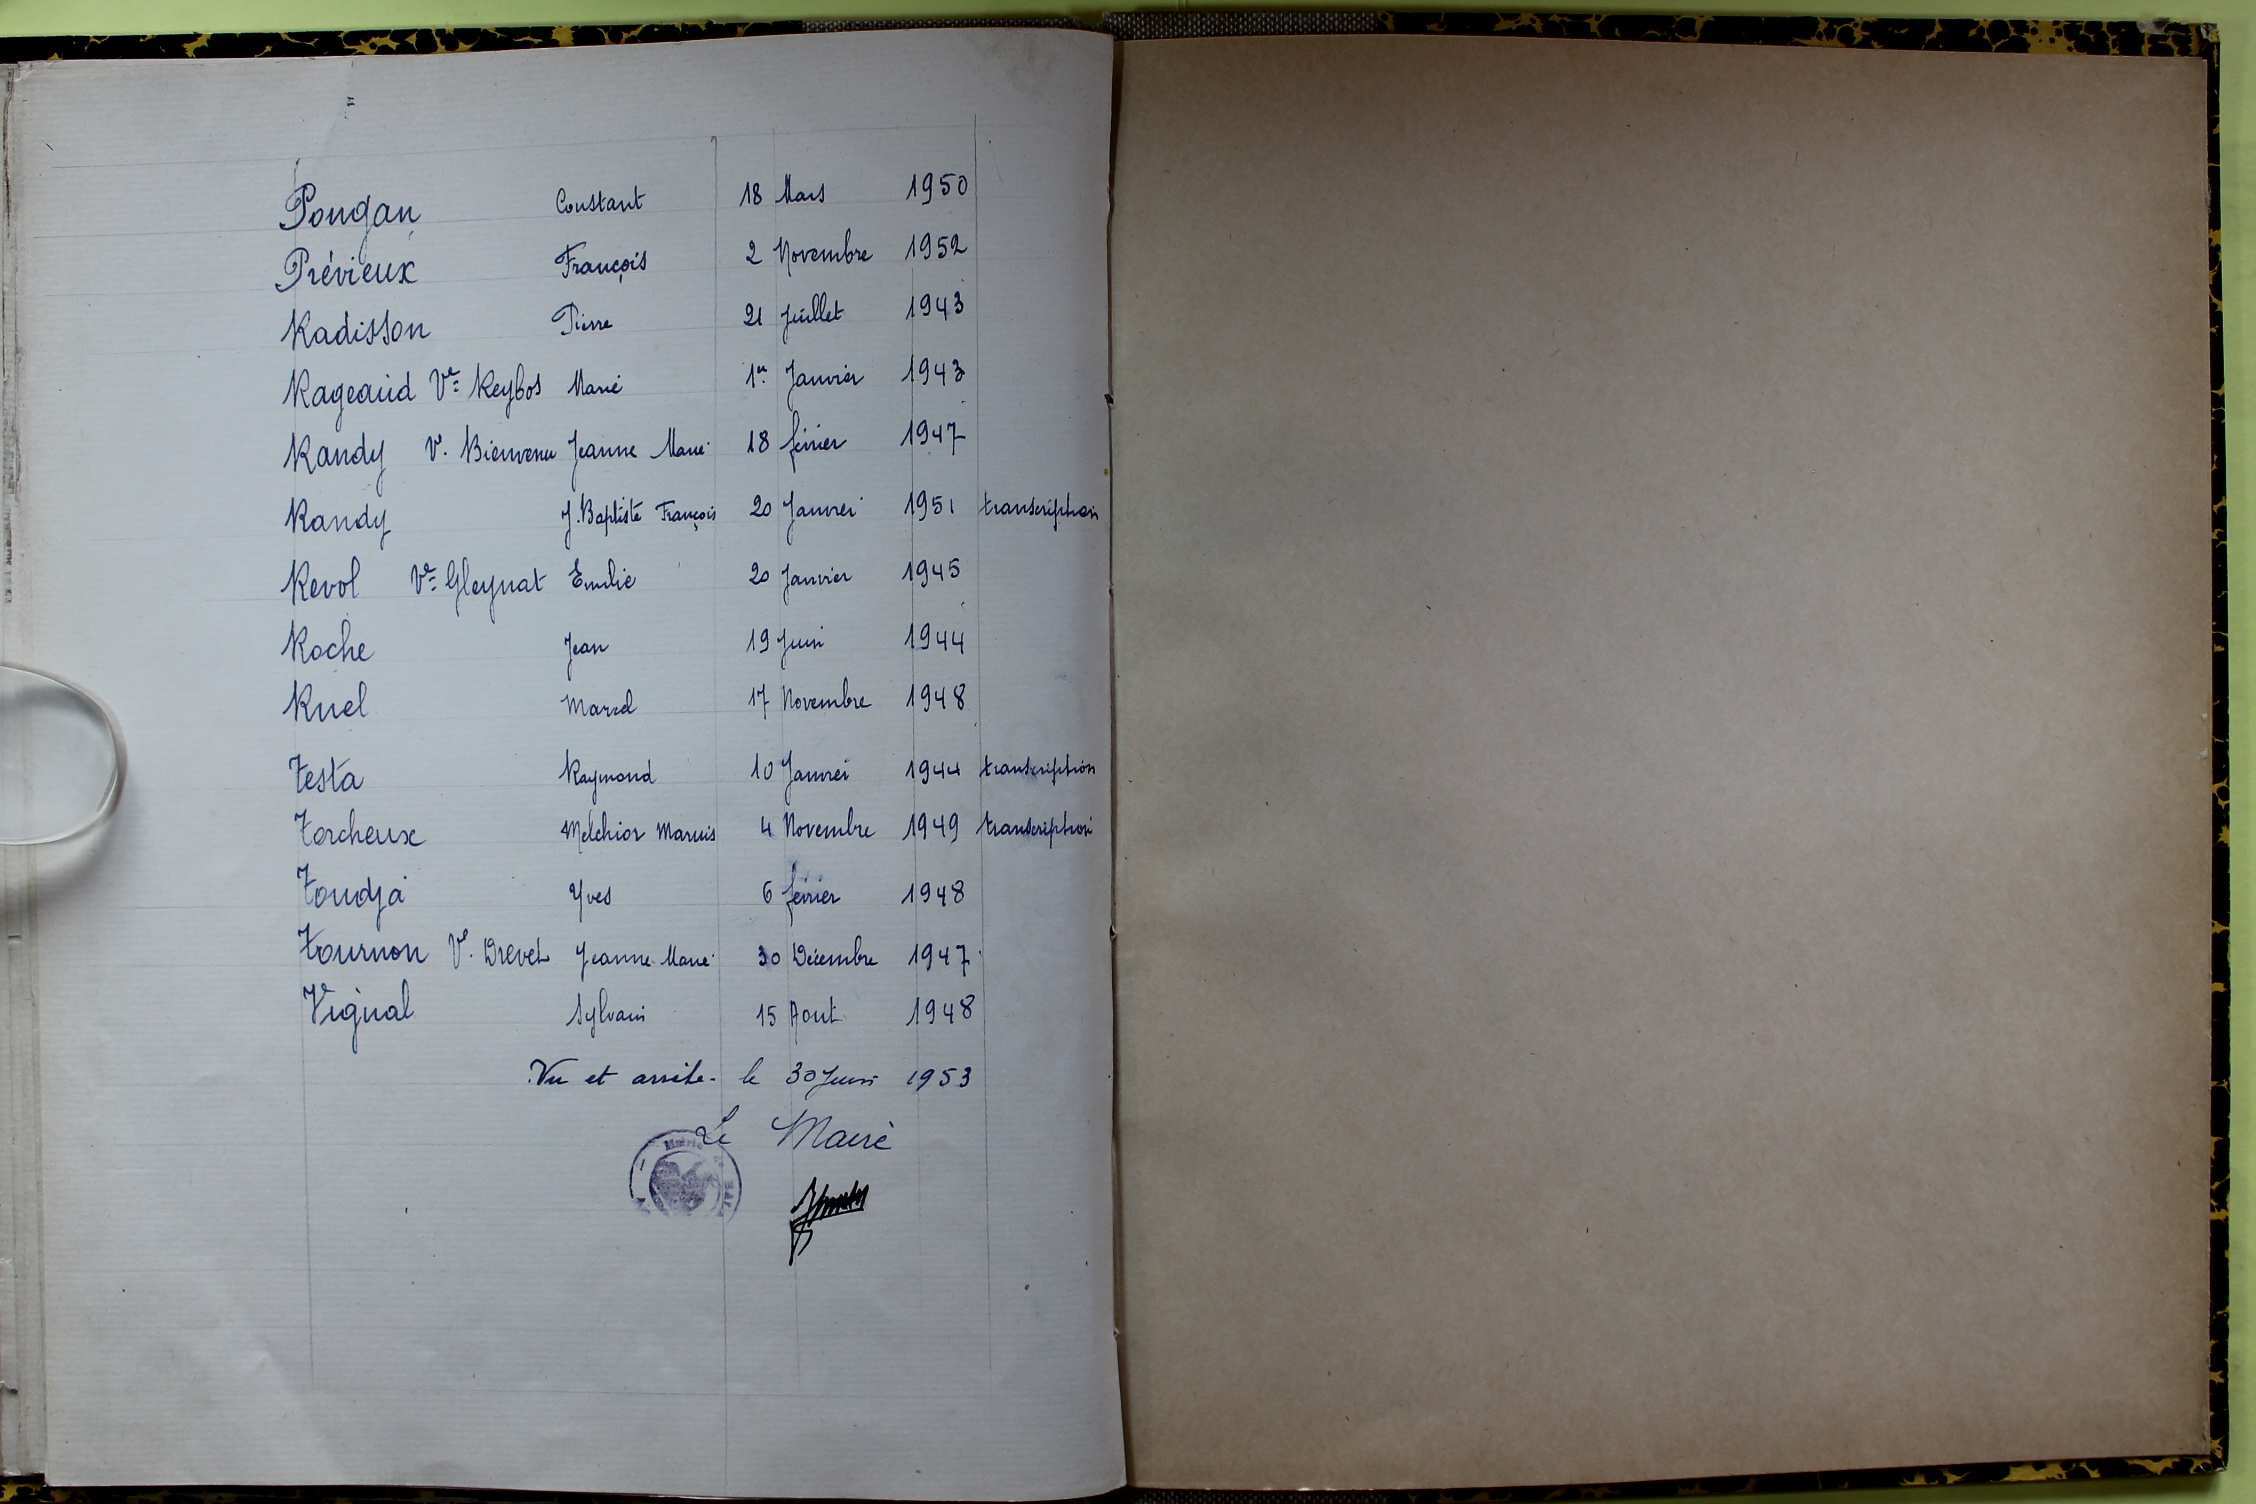 Pongan Constant 18 Mars 1950
Prévieux François 2 Novembre 1952
Radisson Pierre 21 Juillet 1943
Rageaud Ve Reybos Marie 1er Janvier 1943
Randy V. Bienvenu Jeanne Marie 18 février 1947
Randy J. Baptiste François 20 Janvier 1951 transcription
Revol Ve Gleynat Emilie 20 Janvier 1945
Roche Jean 19 Juin 1944
Ruel Marcel 17 Novembre 1948
Testa Raymond 10 Janvier 1944 transcription
Torcheux Melchior Marius 4 Novembre 1949 transcription
Toudja Yves 6 février 1948
Tournon V. Drevet Jeanne Marie 30 Décembre 1947
Vignal Sylvain 15 Aout 1948
Vu et arrêté le 30 Juin 1953
Le Maire
Mairie